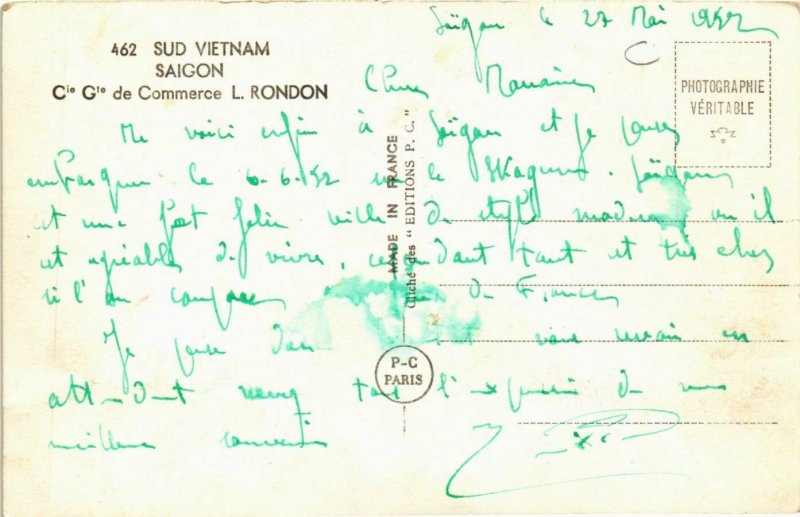 462 SUD VIETNAM
SAIGON
Cie Gle de Commerce L. RONDON
PHOTOGRAPHIE
VÉRITABLE
MADE IN FRANCE
Cliché des "EDITIONS P. C."
P-C
PARIS
Saïgon le 27 Mai 1952
Me voici enfin à Saïgon et je pense
embarquer le 6-6-52 sur le Skaugum. Saïgon
est une fort jolie ville de style moderne où il
est agréable de vivre, cependant tout est très cher
si l'on compare de France
Je pense dans vous revoir en
attendant recevez tous l'expression de mes
meilleurs souvenirs